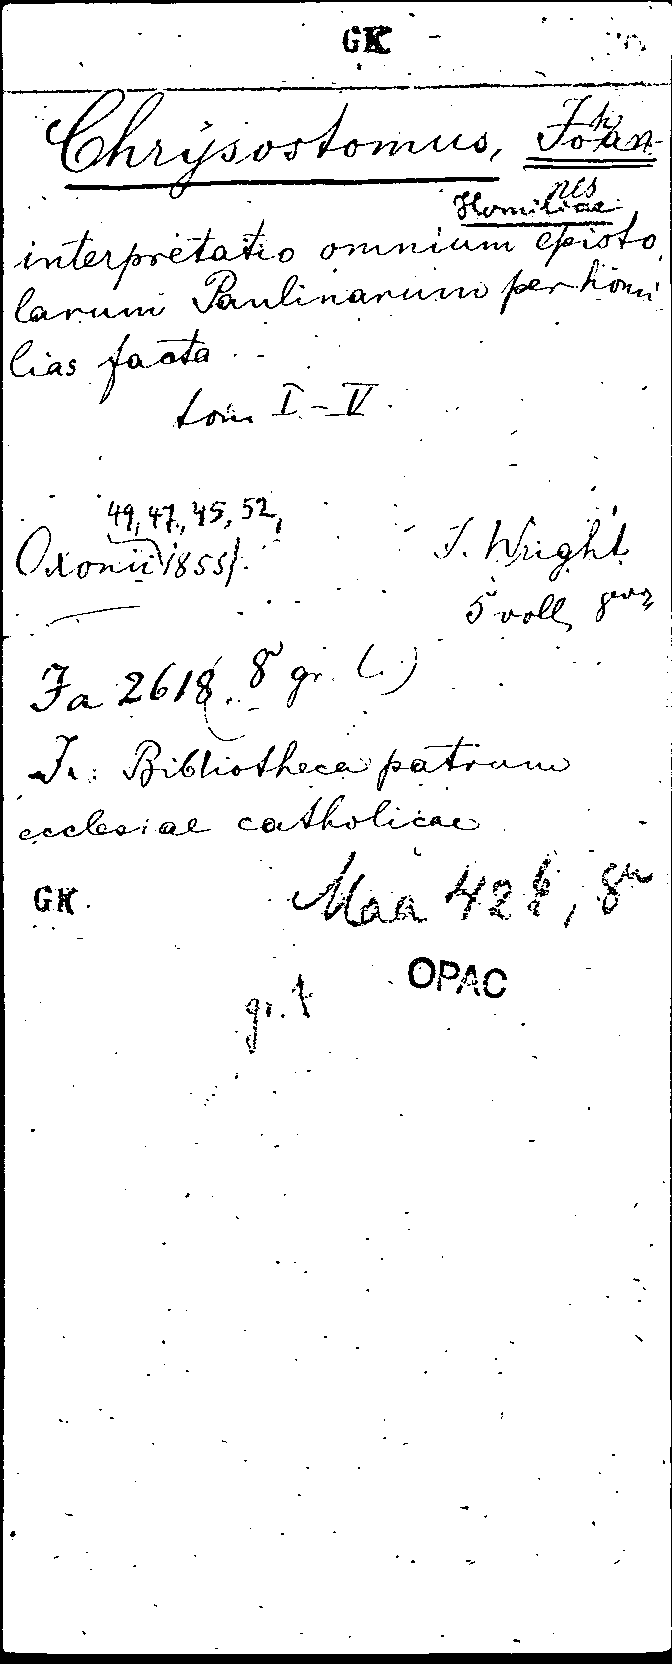 GK
Chrysostomus, Johan-
nes
Homiliae
interpretatio omnium episto
larum Paulinarum per homi
lias facta
tom I-V
49, 47, 45, 52,
Oxonii 1855
J. Wright
5 voll,
Fa 2618 8° gr.
In: Bibliotheca patrum
ecclesiae catholicae
GK
Maa 42
OPAC
gr.